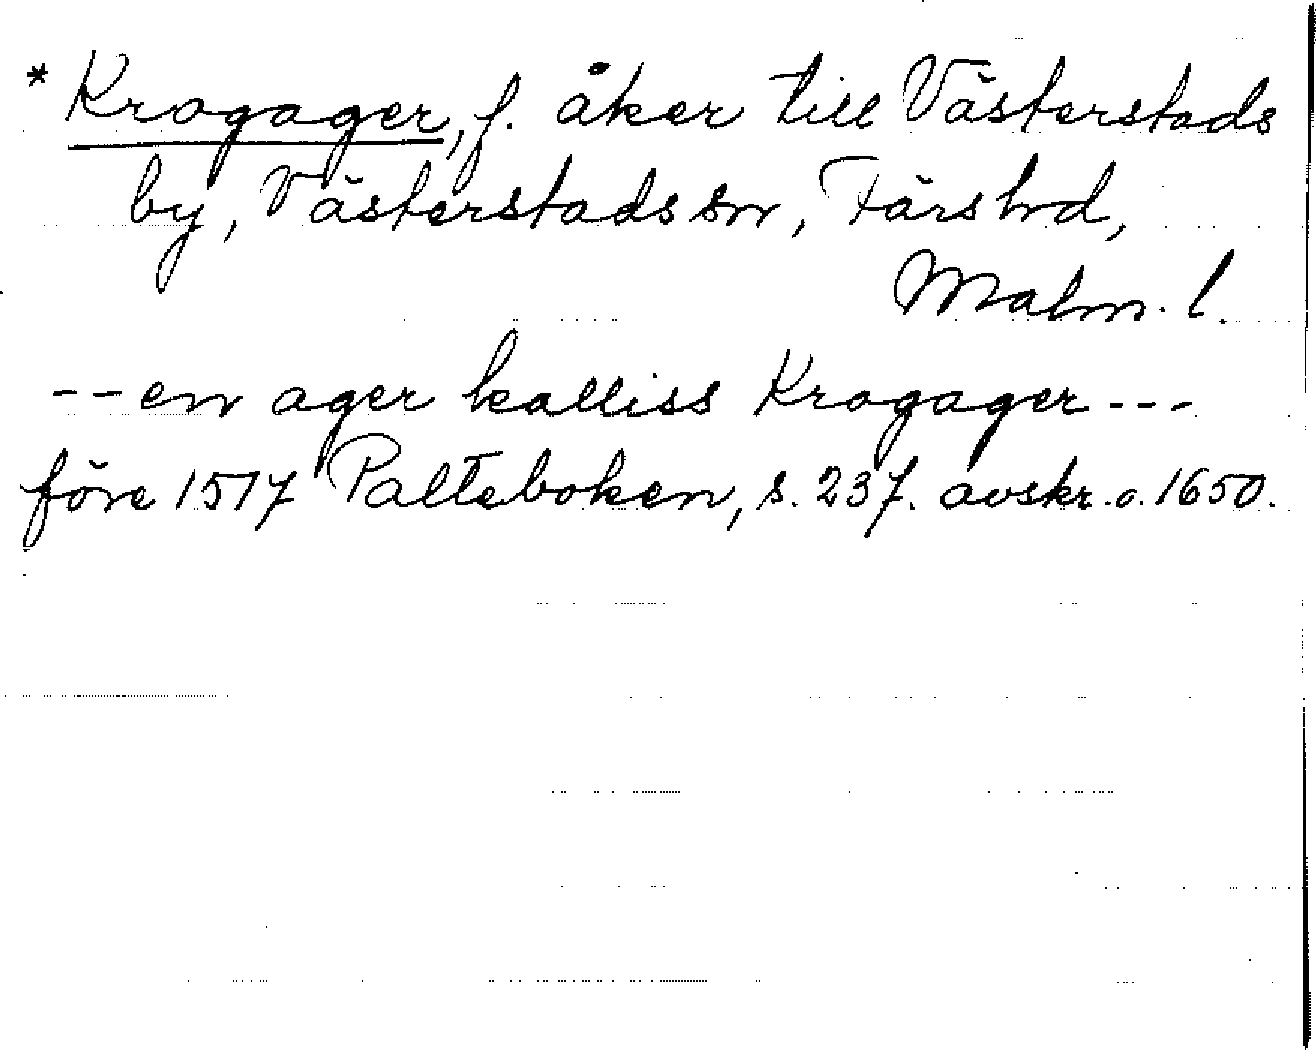 * Krogager, f. åker till Västerstads
by, Västerstads sn, Färs hd,
Malm. l.
-- en ager kalliss Krogager ---
före 1517 Palteboken, s. 237. avskr. o. 1650.